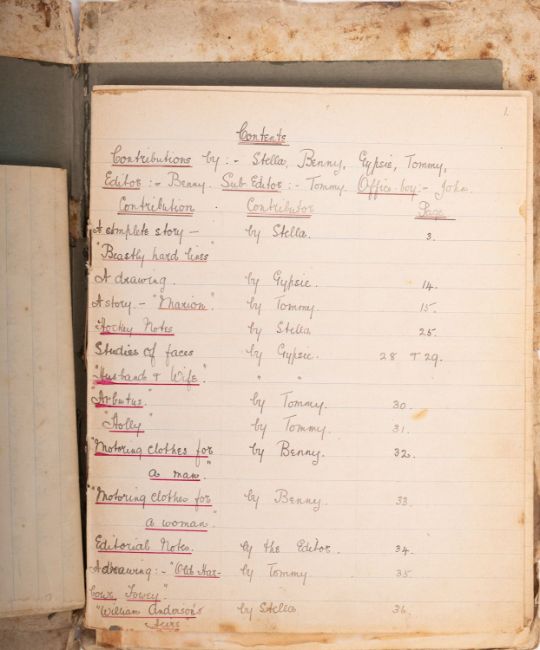 1.
Contents
Contributions by :- Stella, Benny, Gypsie, Tommy,
Editor :- Benny. Sub-Editor :- Tommy. Office-boy :- John.
Contribution Contributor Page
A complete story - by Stella. 3.
"Beastly hard lines"
A drawing. by Gypsie. 14.
A story. - "Marion". by Tommy. 15.
Hockey Notes by Stella 25.
Studies of faces by Gypsie. 28 & 29.
"Husband & Wife." " "
"Arbutus." by Tommy. 30.
"Holly" by Tommy. 31.
"Motoring clothes for by Benny. 32.
a man."
"Motoring clothes for by Benny. 33.
a woman."
Editorial Notes. by the Editor. 34.
A drawing :- "Old Har- by Tommy 35
bour, Fowey."
"William Anderson's by Stella 36.